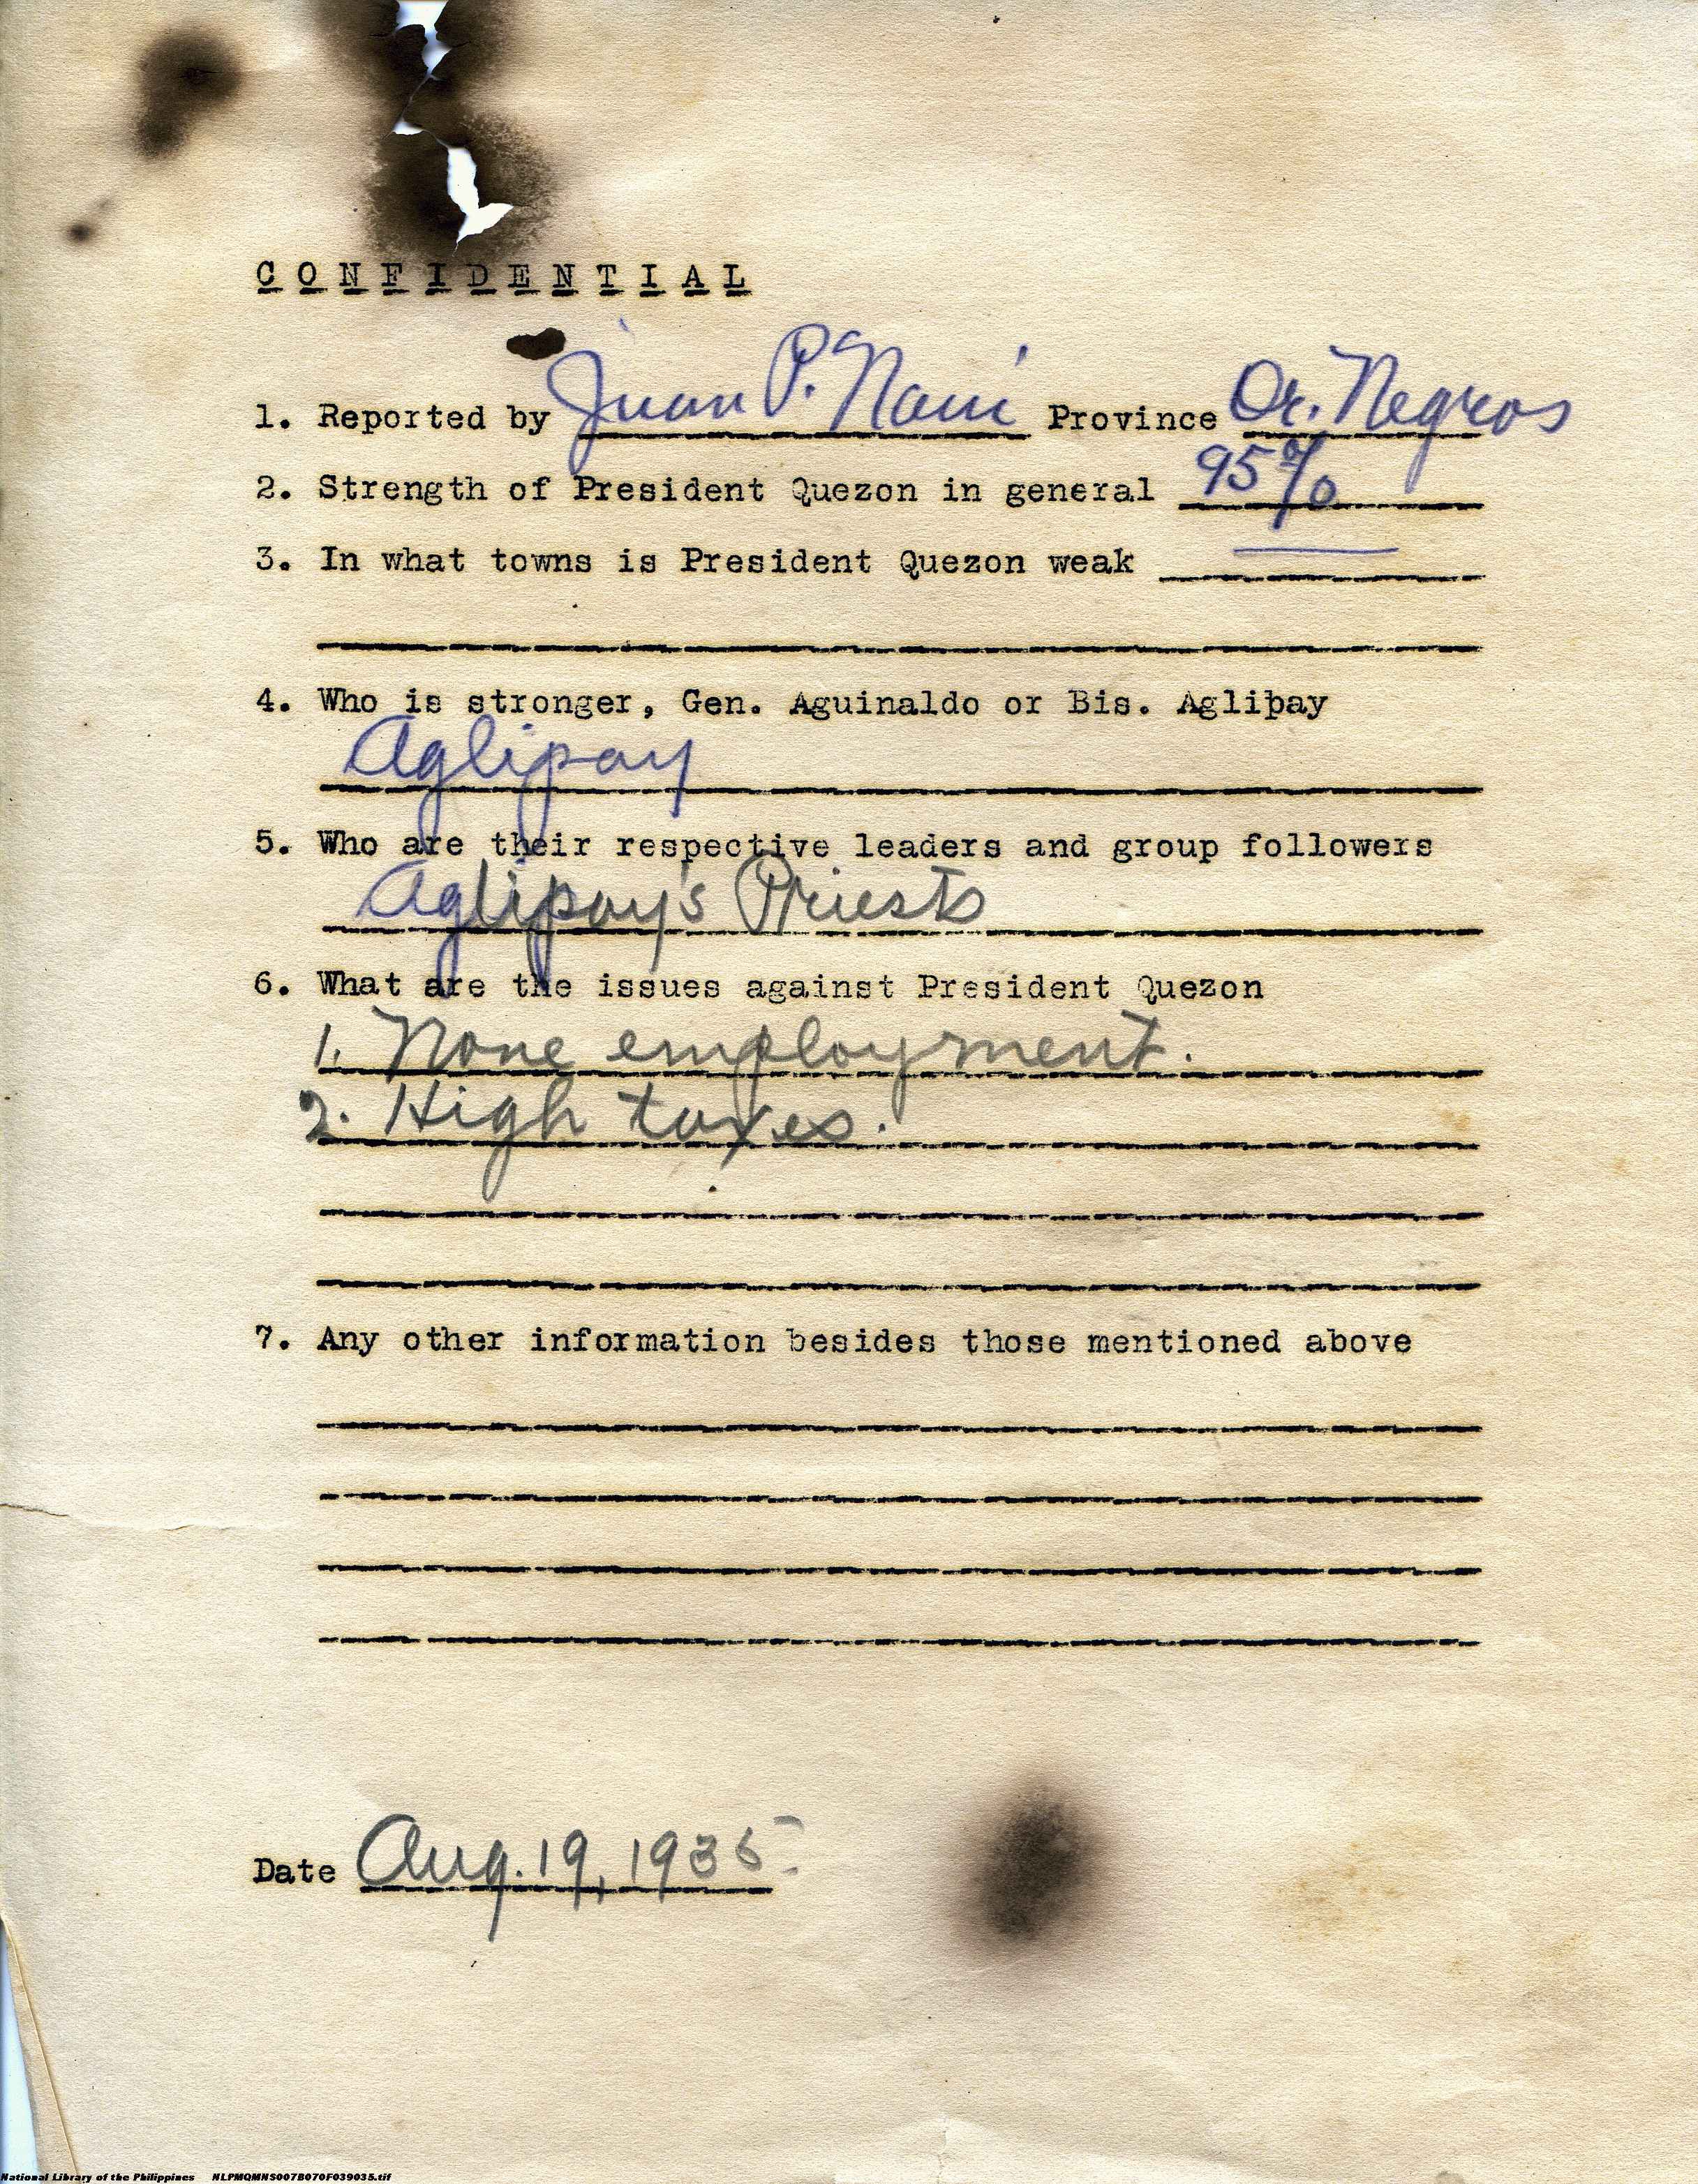 CONFIDENTIAL
1. Reported by Juan P. Province Or. Negros
2. Strength of President Quezon in general 95%
3. In what towns is President Quezon weak
4. Who is stronger, Gen. Aguinaldo or Bis. Aglipay
Aglipay
5. Who are their respective leaders and group followers
Aglipay's Priests
6. What are the issues against President Quezon
1. None employment.
2. High taxes.
7. Any other information besides those mentioned above
Date Aug. 19, 1935
National Library of the Philippines NLPMQMNS007B070F039035.tif